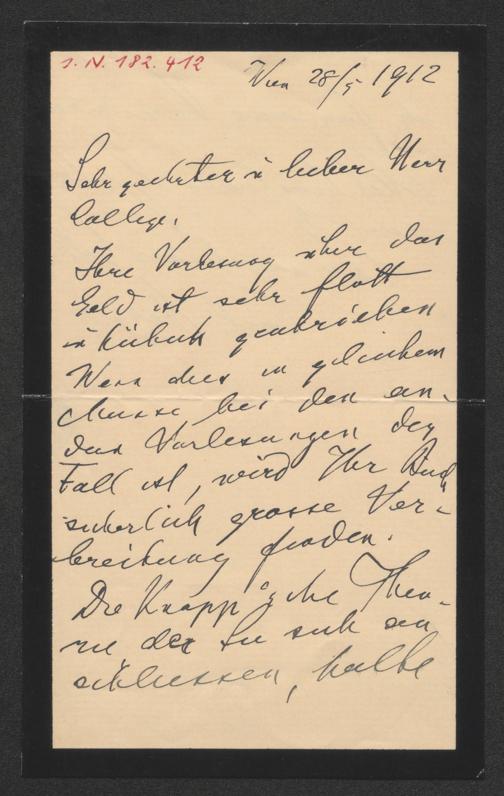 J. N. 182.412
Wien 28/5 1912
Sehr geehrter u lieber Herr
College,
Ihre Vorlesung über das
Geld ist sehr flott
u hübsch geschrieben
Wenn dies in gleichem
Masse bei den an-
dern Vorlesungen der
Fall ist, wird Ihr Buch
sicherlich grosse Ver-
breitung finden.
Die Knapp'sche Theo-
rie der Sie sich an
schliessen, halte